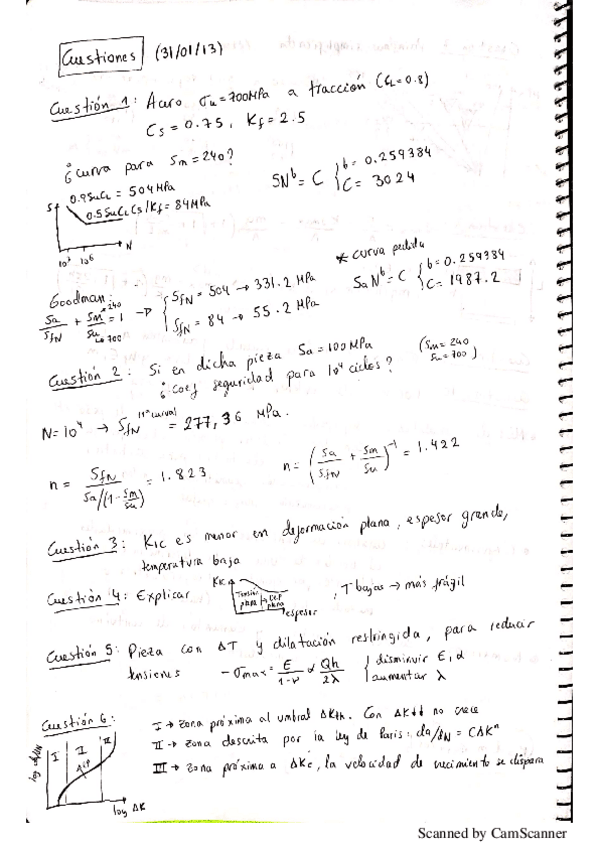 Cuestiones (31/01/13)
Cuestión 1: Acero σu = 700MPa a tracción (CL = 0.8)
Cs = 0.75, Kf = 2.5
¿ curva para Sm = 240?
0.9SuCL = 504 MPa
SN^b = C { b = 0.259384
C = 3024
S
0.5SuCLCs/Kf = 84MPa
10³ 10⁶ N
* curva pedida
Goodman:
Sa/SfN + Sm/Su = 1 → { SfN = 504 → 331.2 MPa
240
700
SfN = 84 → 55.2 MPa
SaN^b = C { b = 0.259384
C = 1987.2
Cuestión 2: Si en dicha pieza Sa = 100MPa (Sm = 240
Su = 700)
¿ coef seguridad para 10⁴ ciclos?
N = 10⁴ → SfN (1ª curva) = 277,36 MPa.
n = SfN / Sa/(1-Sm/Su) = 1.823
n = (Sa/SfN + Sm/Su)^-1 = 1.422
Cuestión 3: KIC es menor en deformación plana, espesor grande,
temperatura baja
Cuestión 4: Explicar KIC Tensión plana Def plana espesor , T bajas → más frágil
Cuestión 5: Pieza con ΔT y dilatación restringida, para reducir
tensiones -σmax = E/1-ν α Qh/2λ { disminuir E, α
aumentar λ
Cuestión 6: I → zona próxima al umbral ΔKth. Con ΔK↓↓ no crece
II → zona descrita por la ley de Paris: da/dN = CΔK^n
III → zona próxima a ΔKc, la velocidad de crecimiento se dispara
log da/dN I II III
log ΔK
Scanned by CamScanner